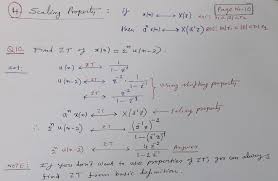 ④ Scaling Property: if x(n) ⟷ X(z)
then aⁿ x(n) ⟷ X(a⁻¹z)
Page No-10
Q10. Find ZT of x(n) = 2ⁿ u(n-2).
Sol.
u(n) ⟷ZT 1/(1-z⁻¹)
u(n-2) ⟷ZT z⁻² · 1/(1-z⁻¹)
⟷ZT z⁻²/(1-z⁻¹) } Using shifting property
aⁿ x(n) ⟷ZT X(a⁻¹z) ← Scaling property
∴ 2ⁿ u(n-2) ⟷ZT (2⁻¹z)⁻²/(1-(2⁻¹z)⁻¹)
2ⁿ u(n-2) ⟷ZT 4z⁻²/(1-2z⁻¹) Answer
NOTE: If you don't want to use properties of ZT, you can always
find ZT from basic definition.